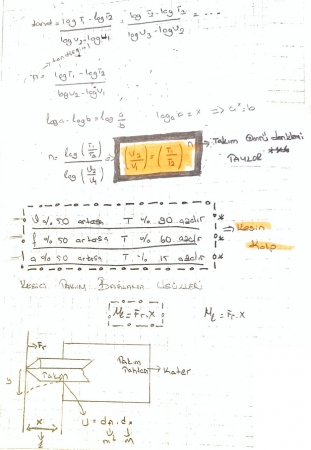 tanα = log T₁ - log T₂ / log V₂ - log V₁ = log T₂ - log T₃ / log V₃ - log V₂ = ...
n = log T₁ - log T₂ / log V₂ - log V₁
log a - log b = log a/b   log_a b = x => aˣ = b
n = log (T₁/T₂) / log (V₂/V₁)   (V₂/V₁)ⁿ = (T₁/T₂) → Takım Ömrü denklemi
TAYLOR
V % 50 artarsa T % 90 azalır
f % 50 artarsa T % 60 azalır => Kesin
a % 50 artarsa T % 15 azalır
KESİCİ TAKIM BAĞLAMA
Mₑ = Fr . X   Mₑ = Fr . X
Fr
Takım
Takım → Kater
y
x